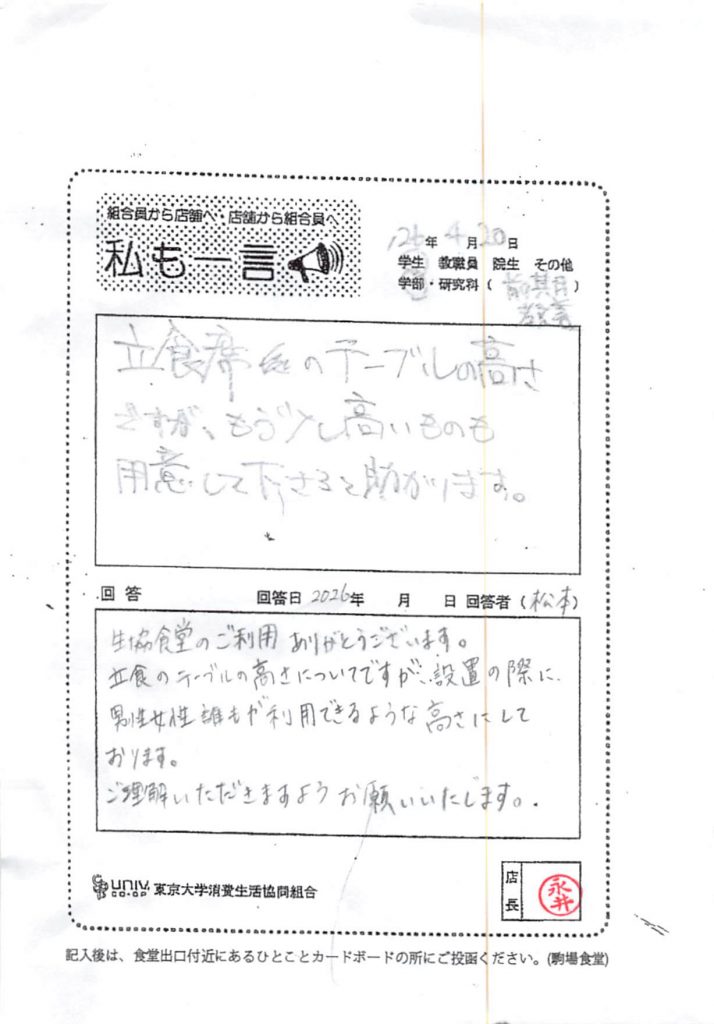 組合員から店舗へ・店舗から組合員へ
私も一言
'26年 4月 20日
学生 教職員 院生 その他
学部・研究科( 前期
教養 )
立食席 のテーブルの高さ
ですが、もう少し高いものも
用意して下さると助かります。
回答 回答日 2026年 月 日 回答者(松本)
生協食堂のご利用ありがとうございます。
立食のテーブルの高さについてですが、設置の際に、
男性女性誰もが利用できるような高さにして
おります。
ご理解いただきますようお願いいたします。
UNIV. CO-OP 東京大学消費生活協同組合
店長
永井
記入後は、食堂出口付近にあるひとことカードボードの所にご投函ください。(駒場食堂)